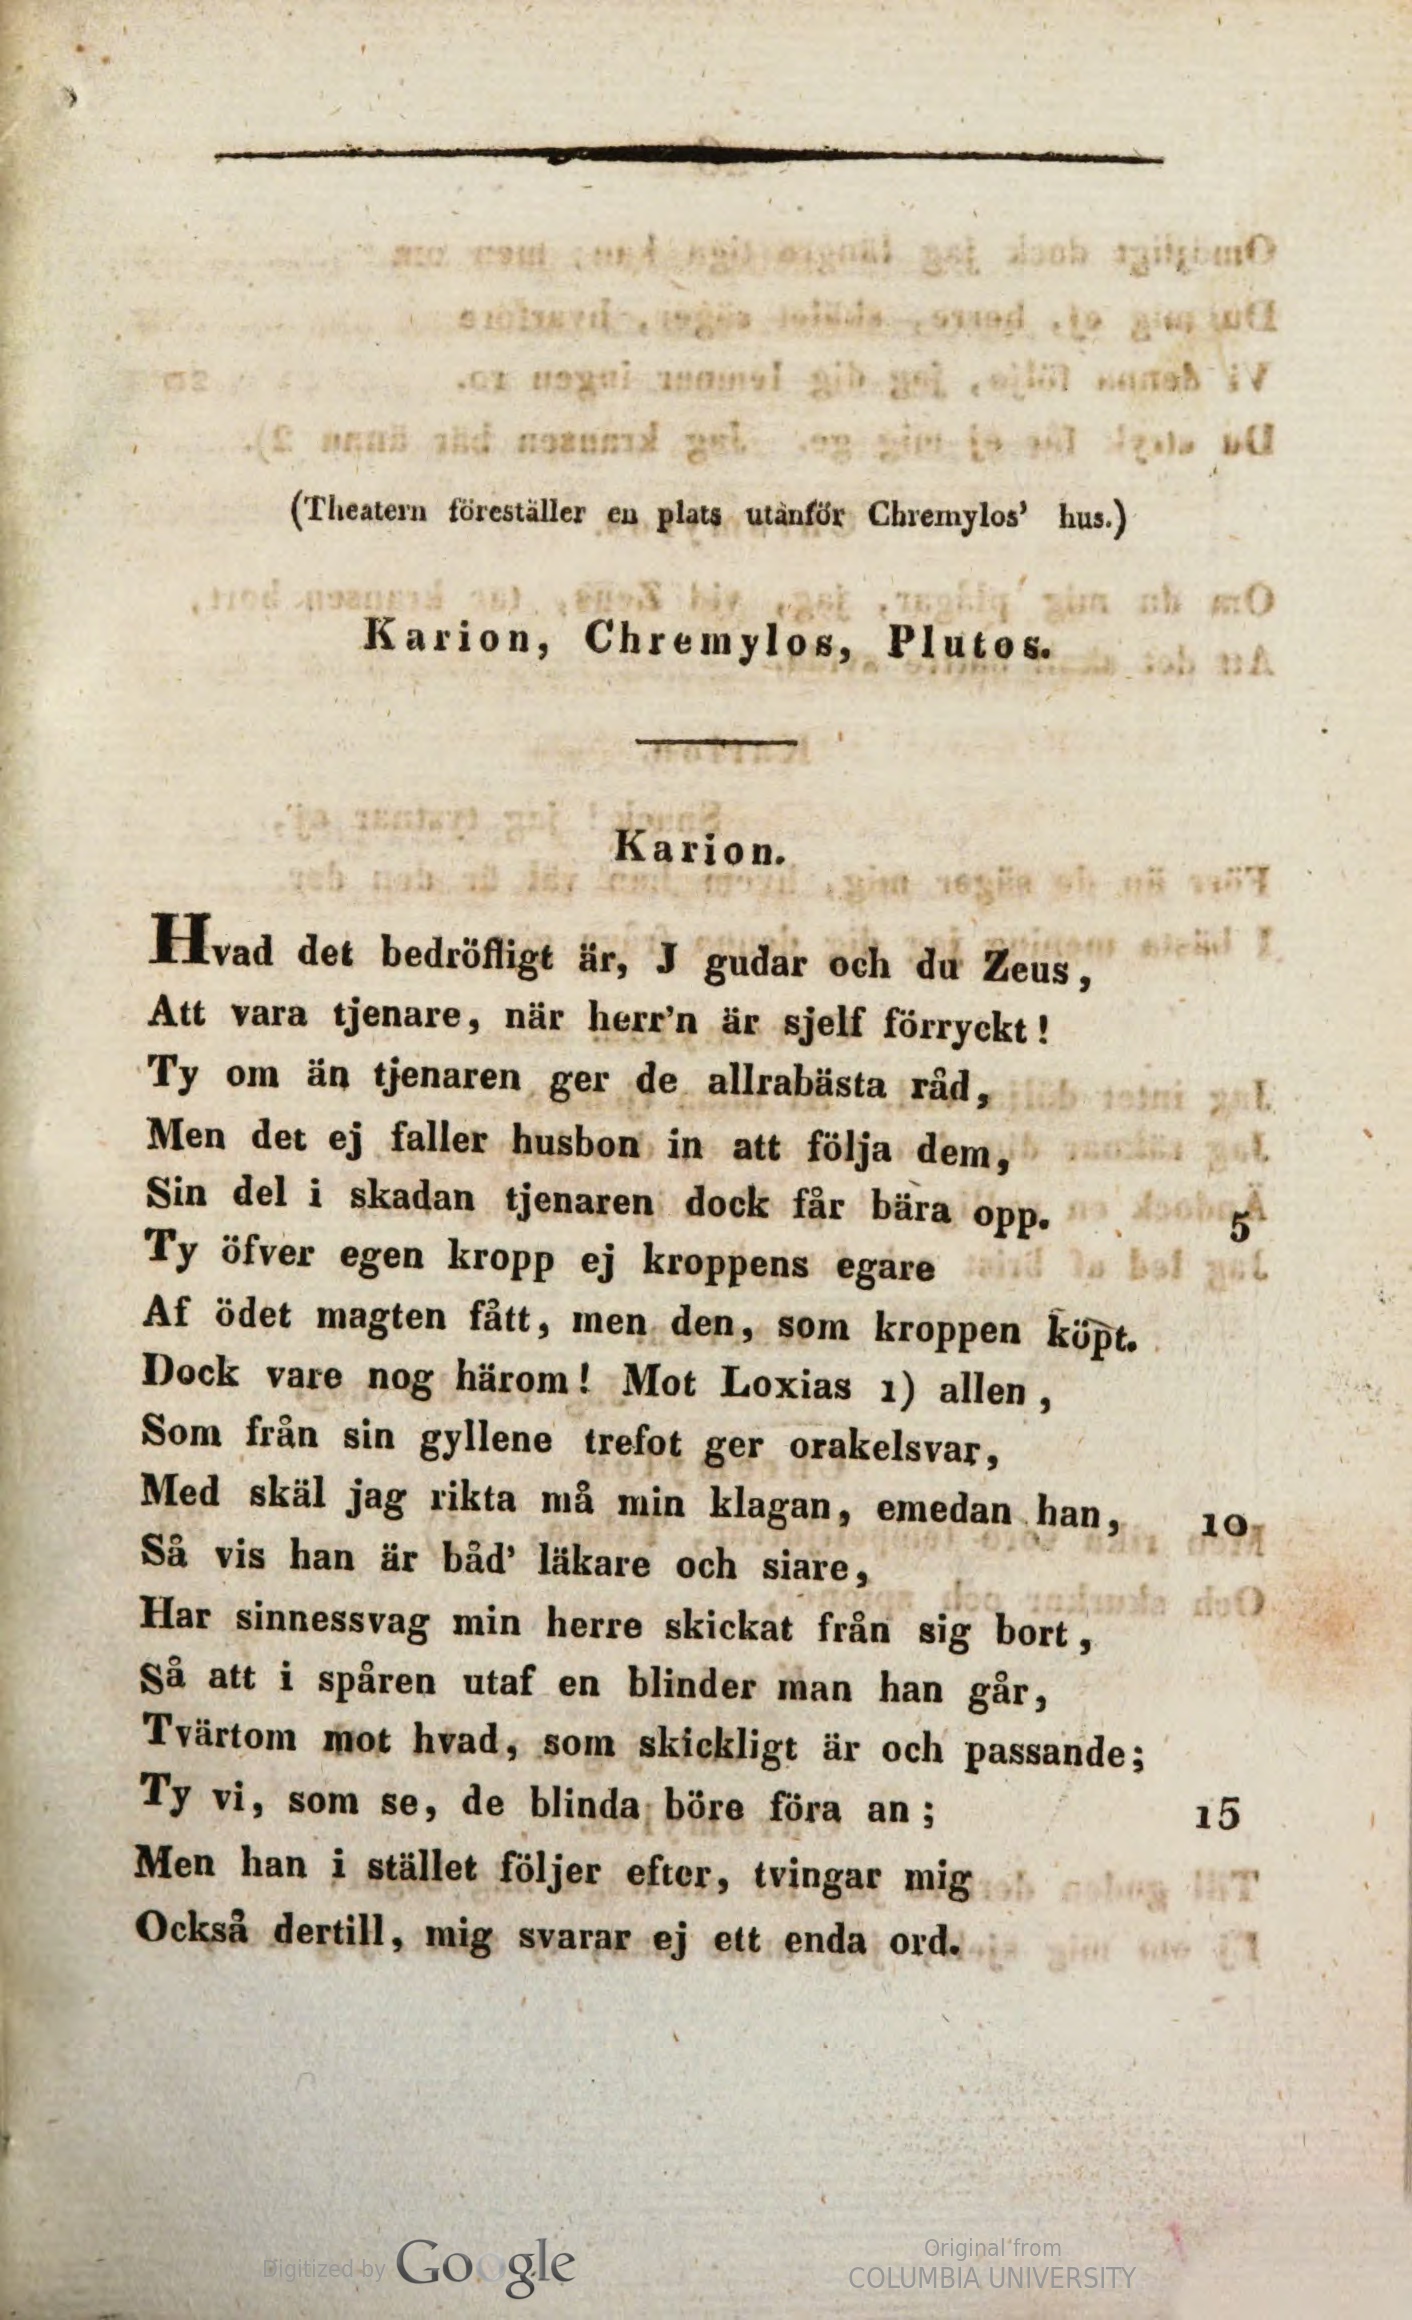 (Theatern föreställer en plats utanför Chremylos' hus.)
Karion, Chremylos, Plutos.
Karion.
Hvad det bedröfligt är, J gudar och du Zeus,
Att vara tjenare, när herr'n är sjelf förryckt!
Ty om än tjenaren ger de allrabästa råd,
Men det ej faller husbon in att följa dem,
Sin del i skadan tjenaren dock får bära opp. 5
Ty öfver egen kropp ej kroppens egare
Af ödet magten fått, men den, som kroppen köpt.
Dock vare nog härom! Mot Loxias 1) allen,
Som från sin gyllene trefot ger orakelsvar,
Med skäl jag rikta må min klagan, emedan han, 10
Så vis han är båd' läkare och siare,
Har sinnessvag min herre skickat från sig bort,
Så att i spåren utaf en blinder man han går,
Tvärtom mot hvad, som skickligt är och passande;
Ty vi, som se, de blinda böre föra an; 15
Men han i stället följer efter, tvingar mig
Också dertill, mig svarar ej ett enda ord.
Digitized by Google
Original from
COLUMBIA UNIVERSITY